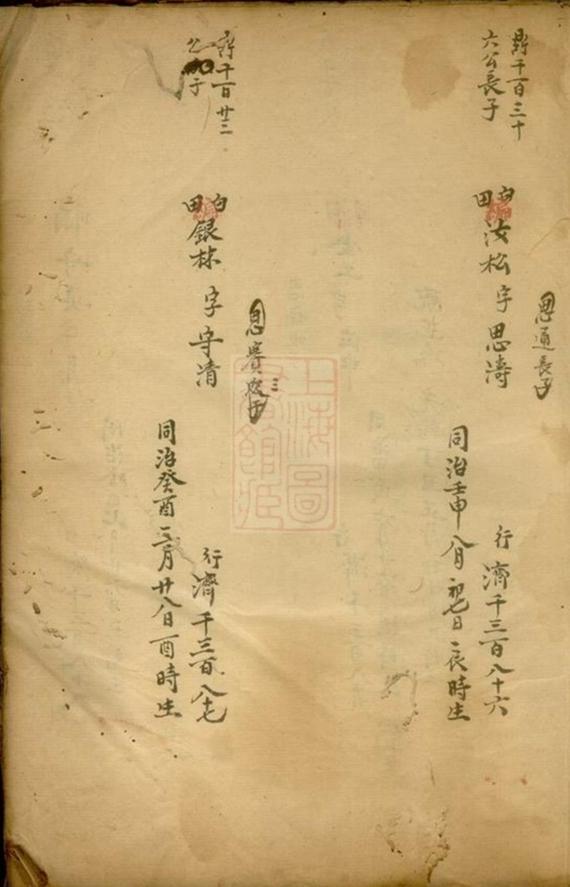 鼎千百三十
六公長子
白田
汝松 字 思濤
思通長子
行 濟千三百八十六
同治壬申八月初七日辰時生
千百廿三
公
子
白田
銀林 字 守清
思賚
三子
行 濟千三百八十七
同治癸酉二月廿八日酉時生
上海圖書館藏